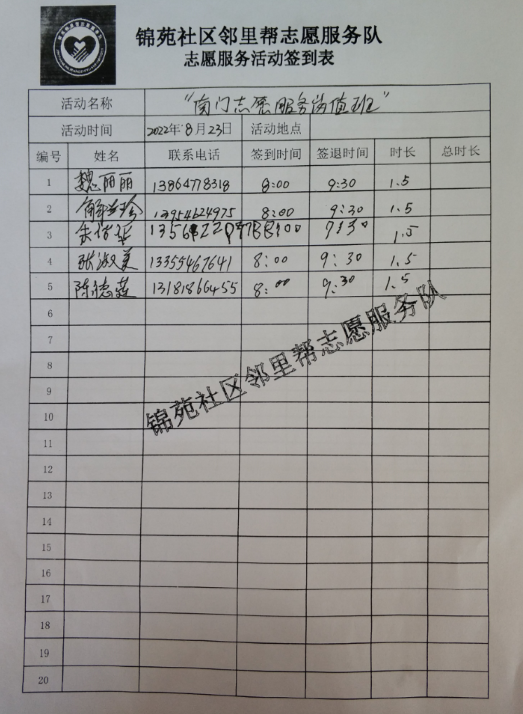 锦苑社区邻里帮志愿服务队
志愿服务活动签到表
活动名称 "南门志愿服务岗值班"
活动时间 2022年8月23日 活动地点
编号 姓名 联系电话 签到时间 签退时间 时长 总时长
1 魏丽丽 13864778318 8:00 9:30 1.5
2 13954624975 8:00 9:30 1.5
3 8:00 9:30 1.5
4 张淑美 13355467641 8:00 9:30 1.5
5 陈德莲 13181866455 8:00 9:30 1.5
6
7
8
锦苑社区邻里帮志愿服务队
9
10
11
12
13
14
15
16
17
18
19
20